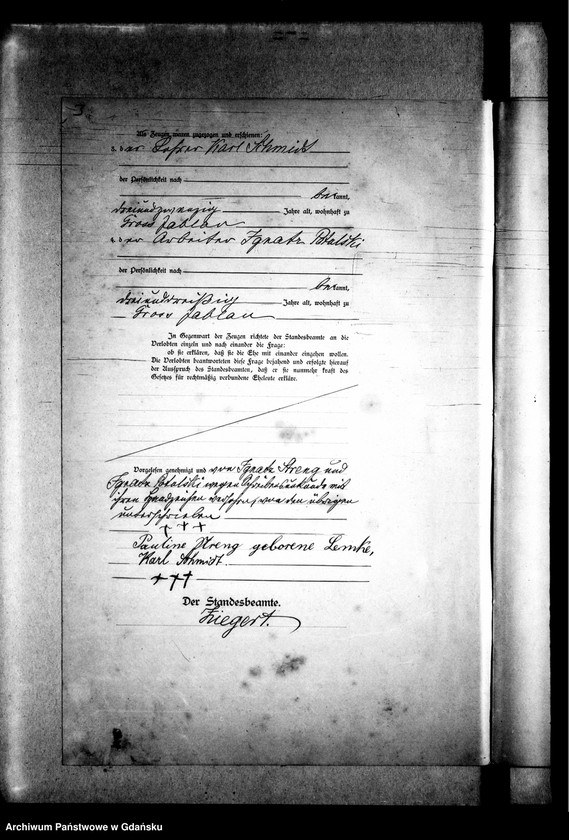 Als Zeugen waren zugezogen und erschienen:
3. der Lehrer Karl Schmidt
der Persönlichkeit nach
bekannt,
dreiundzwanzig Jahre alt, wohnhaft zu
Gross Jablau
4. der Arbeiter Ignatz
der Persönlichkeit nach
bekannt,
dreiunddreißig Jahre alt, wohnhaft zu
Gross Jablau
In Gegenwart der Zeugen richtete der Standesbeamte an die
Verlobten einzeln und nach einander die Frage:
ob sie erklären, daß sie die Ehe mit einander eingehen wollen.
Die Verlobten beantworteten diese Frage bejahend und erfolgte hierauf
der Ausspruch des Standesbeamten, daß er sie nunmehr kraft des
Gesetzes für rechtmäßig verbundene Eheleute erkläre.
Vorgelesen genehmigt und von Ignatz Streng und
Ignatz wegen Schreibensunkunde mit
ihren Handzeichen versehen, von den übrigen
unterschrieben
+++
Pauline Streng geborene Lemke,
Karl Schmidt.
+++
Der Standesbeamte.
Ziegert.
Archiwum Państwowe w Gdańsku